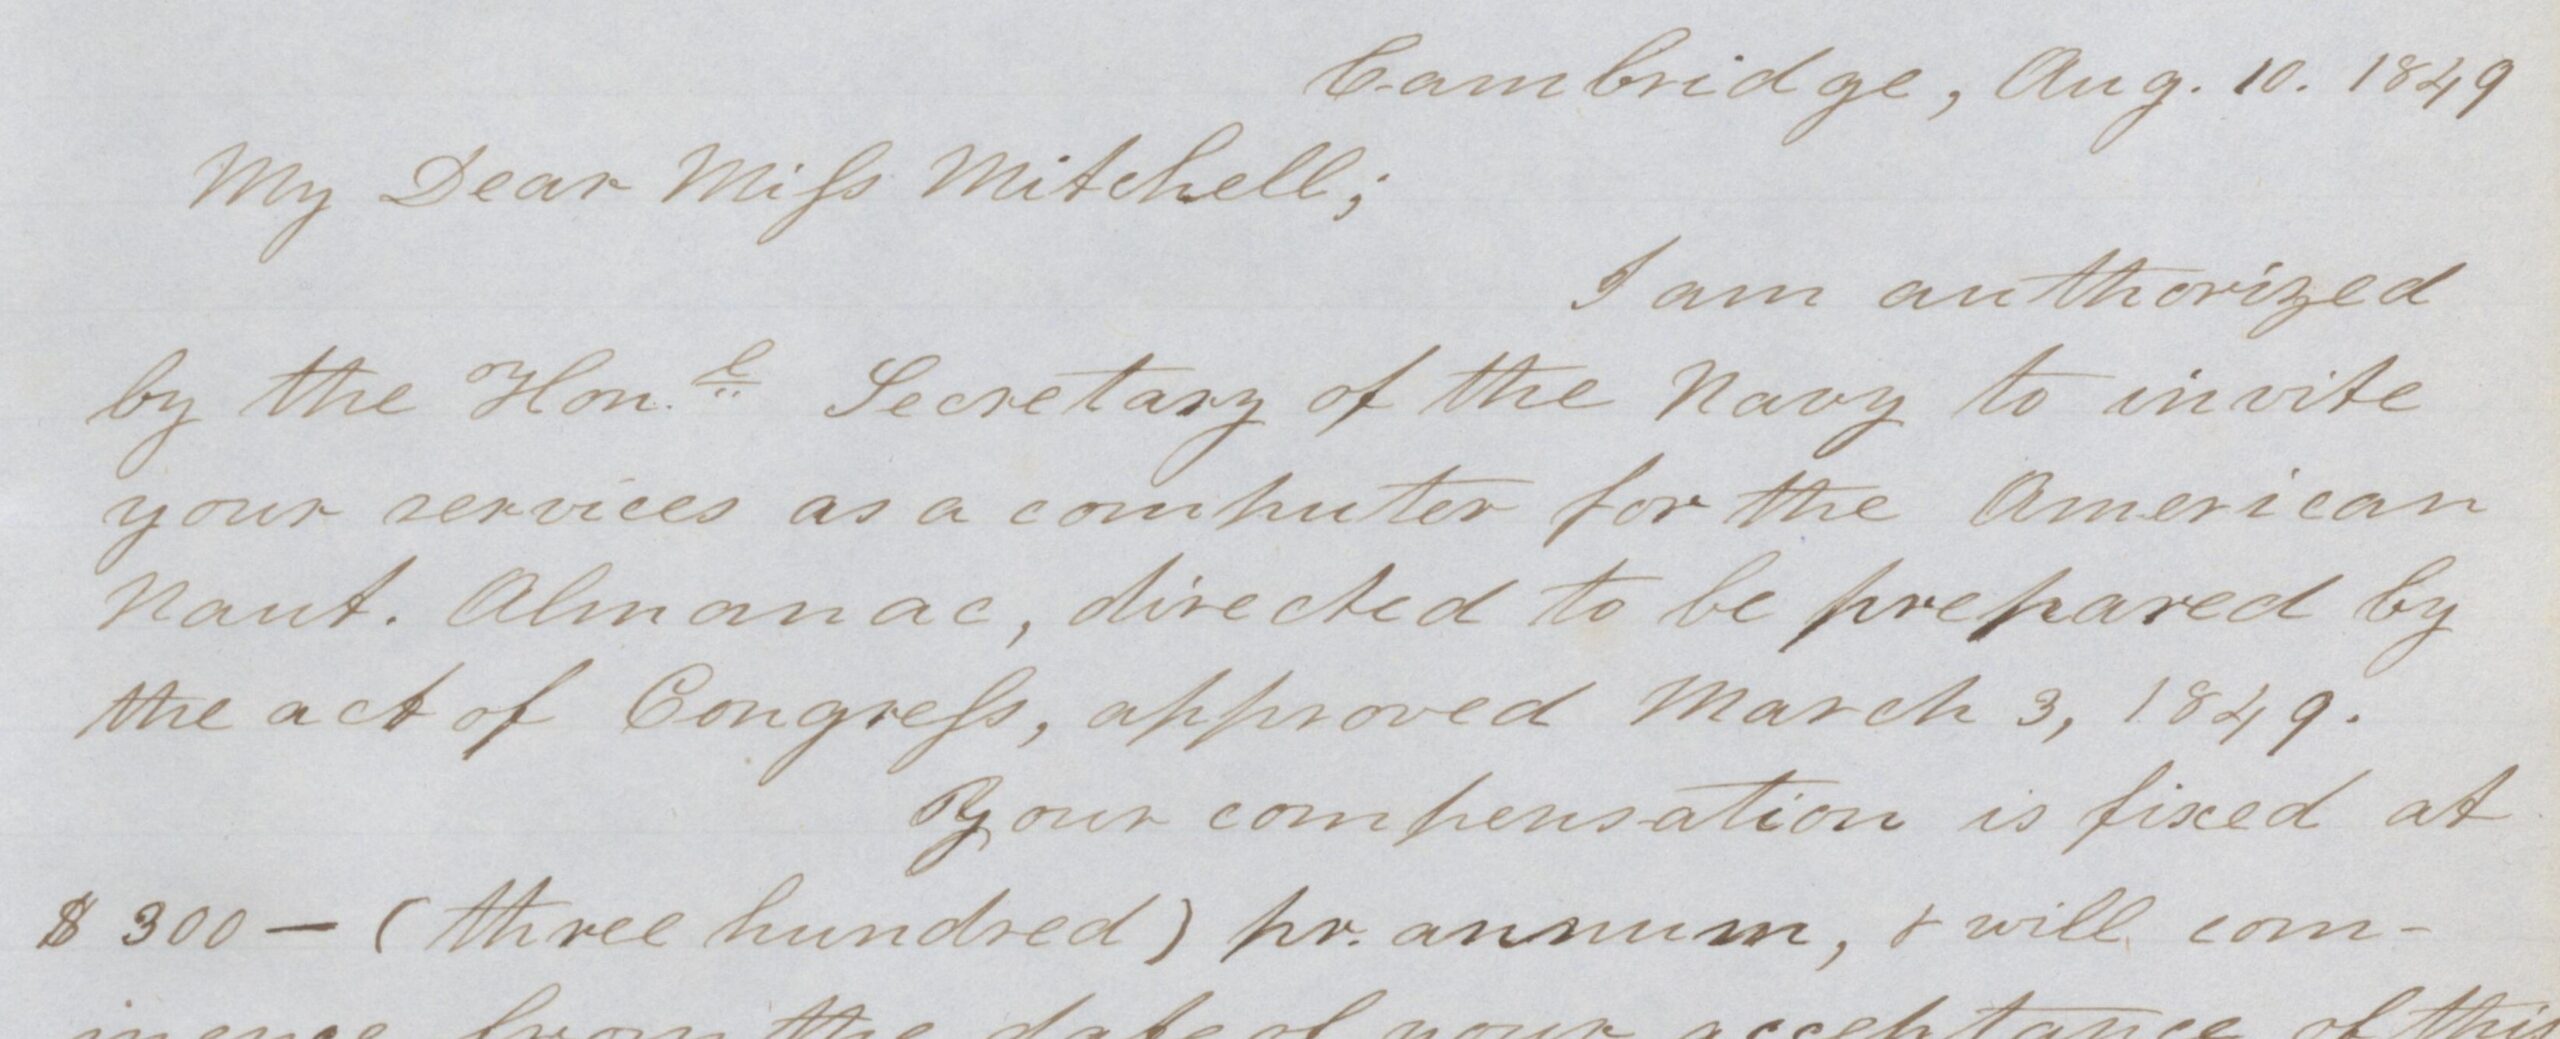 Cambridge, Aug. 10. 1849
My Dear Miſs Mitchell;
I am authorized
by the Hon.e Secretary of the Navy to invite
your services as a computer for the American
Naut. Almanac, directed to be prepared by
the act of Congreſs, approved March 3, 1849.
Your compensation is fixed at
$300 — (three hundred) pr. annum, & will com-
mence from the date of your acceptance of this